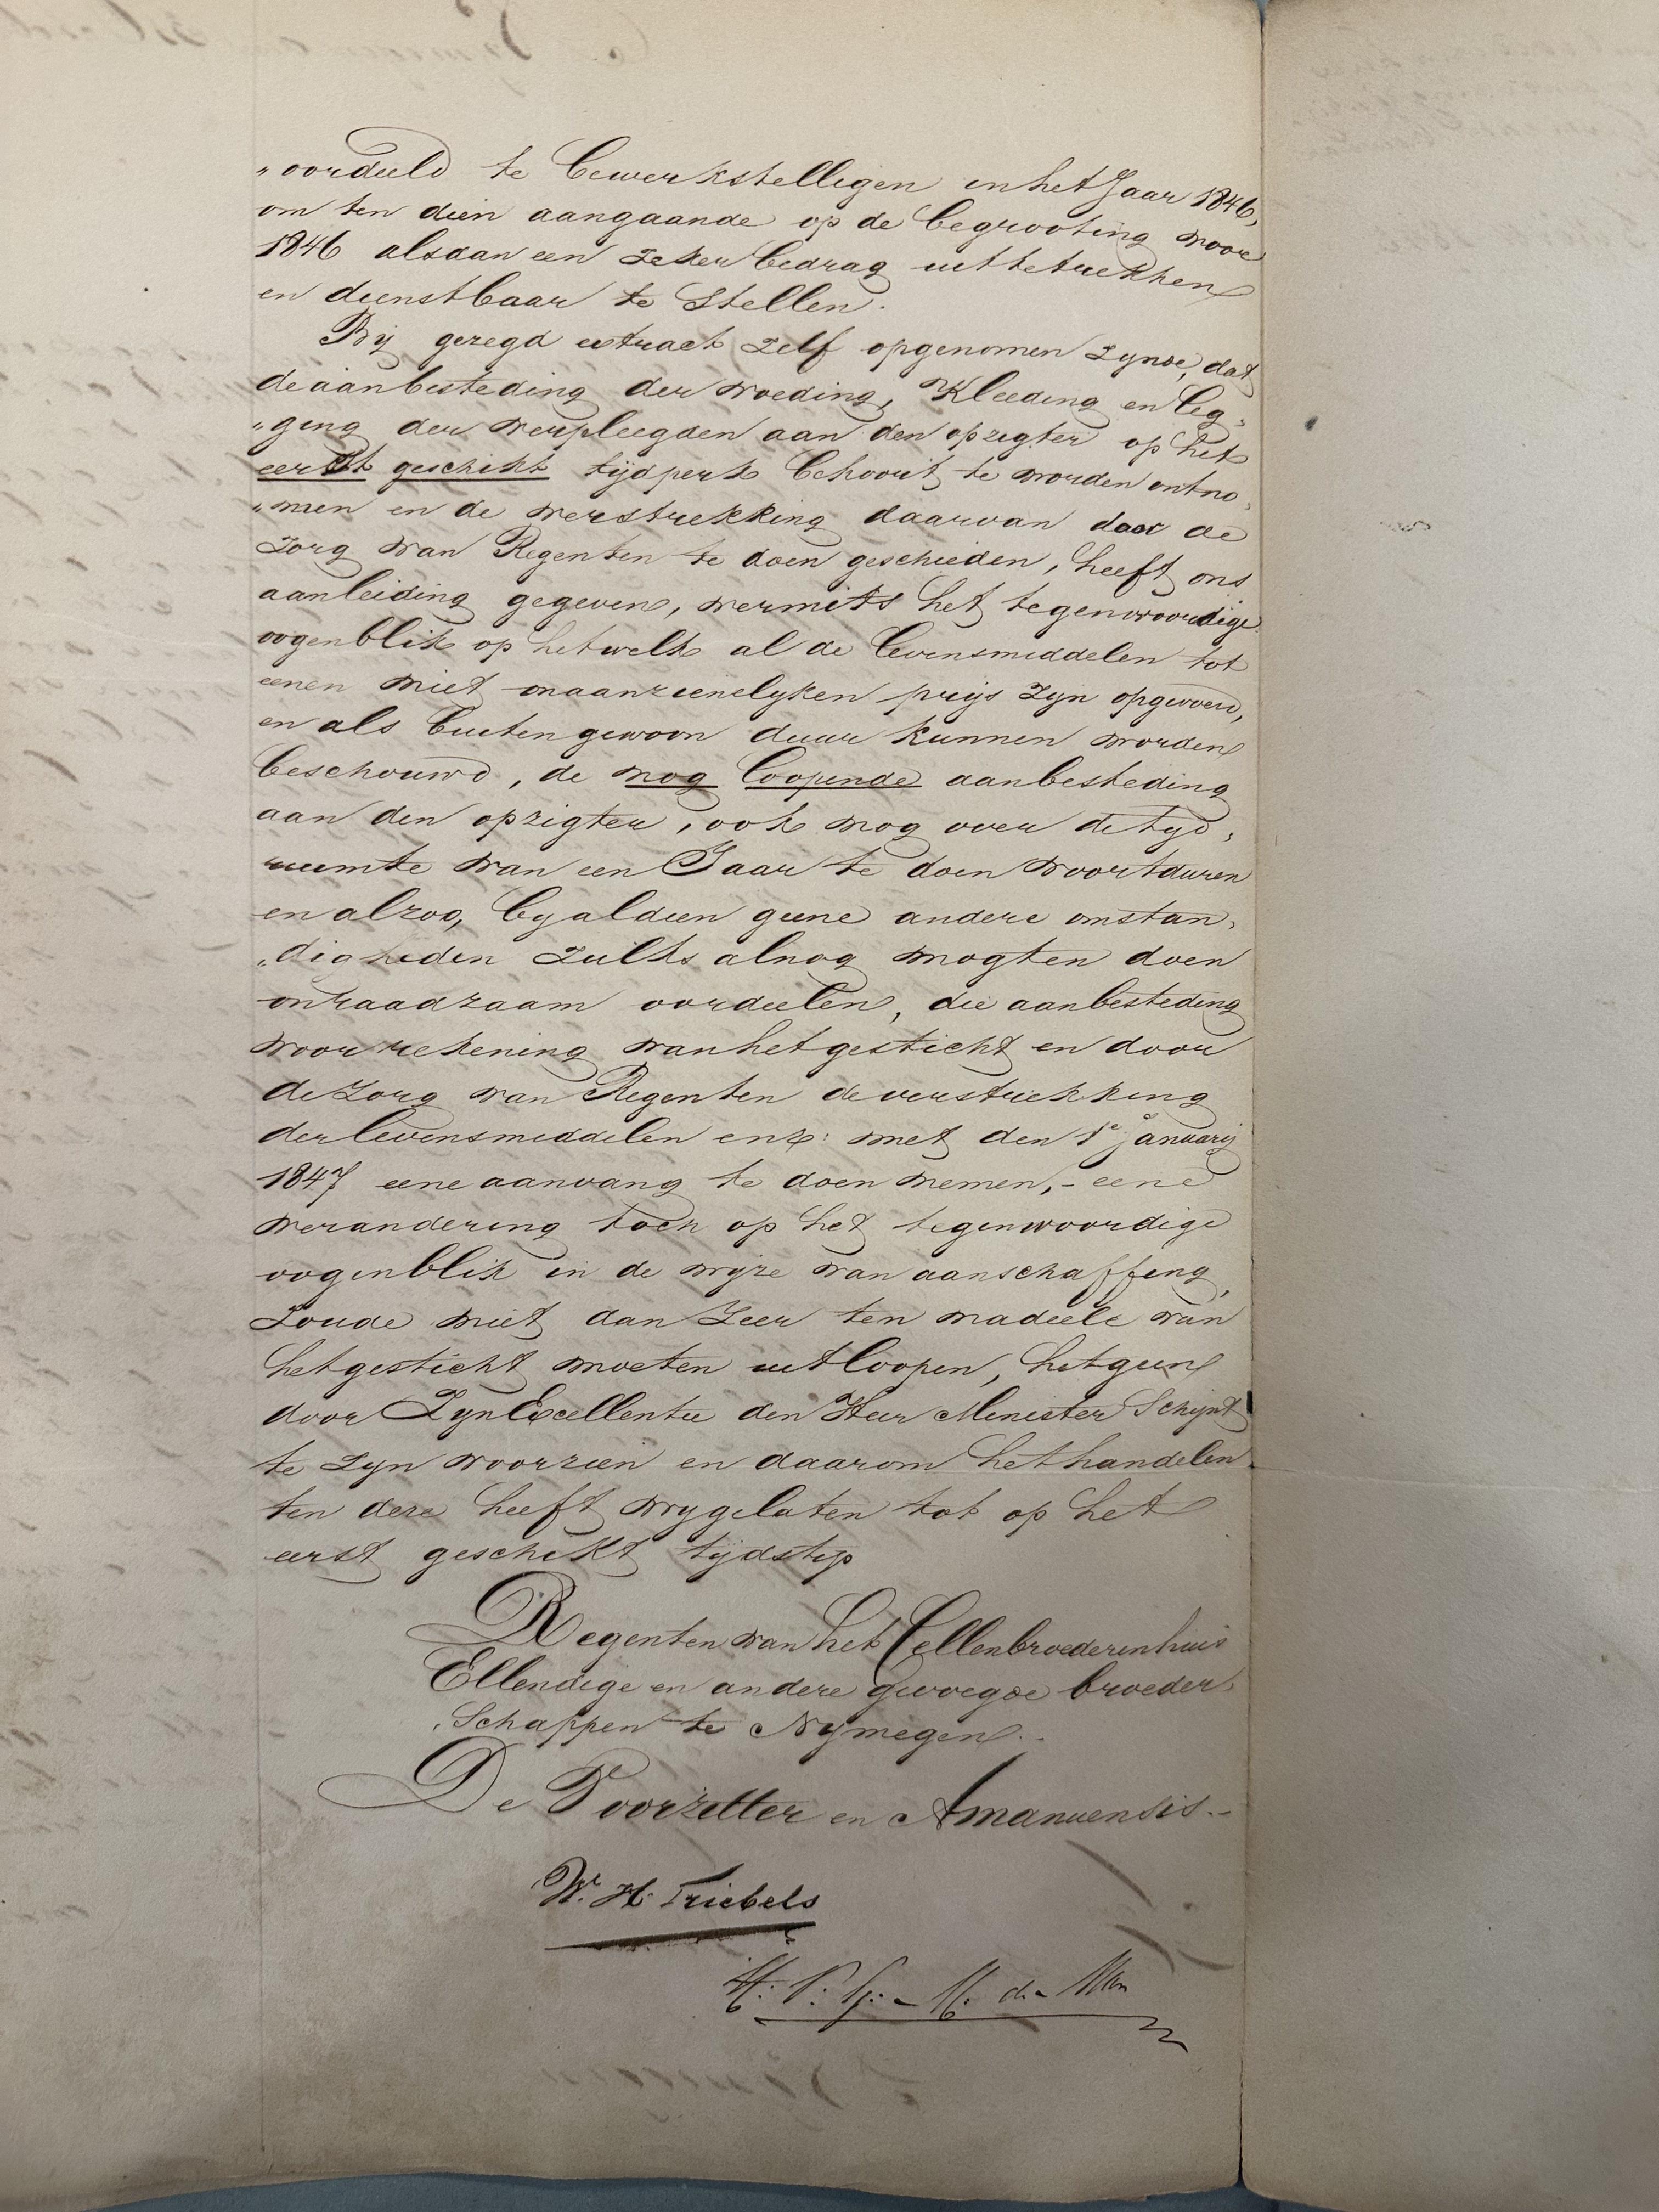 „oordeeld te bewerkstelligen in het Jaar 1846,
om ten dien aangaande op de begrooting voor
1846 alsdan een zeker bedrag uit te trekken
en dienstbaar te stellen.
Bij gezegd extract zelf opgenomen zynde, dat
de aanbesteding der voeding, Kleeding en leg„
„ging der verpleegden aan den opzigter op het
eerst geschikt tijdperk behoort te worden ontno„
„men en de verstrekking daarvan door de
zorg van Regenten te doen geschieden, heeft ons
aanleiding gegeven, vermits het tegenwoordige
oogenblik op hetwelk al de levensmiddelen tot
eenen niet onaanzienelyken prijs zyn opgevoerd,
en als buitengewoon duur kunnen worden
beschouwd, de nog loopende aanbesteding
aan den opzigter, ook nog over de tyd„
ruimte van een Jaar te doen voortduren
en alzoo, byaldien geene andere omstan„
„digheden zulks alnog mogten doen
onraadzaam oordeelen, die aanbesteding
voor rekening van het gesticht en door
de zorg van Regenten de verstrekking
der levensmiddelen enz: met den 1e january
1847 eene aanvang te doen nemen, - eene
verandering toch op het tegenwoordige
oogenblik in de wijze van aanschaffing,
zoude niet dan zeer ten nadeele van
het gesticht moeten uitloopen, hetgeen
door Zyn Excellentie den Heer Minister Schijnt
te zyn voorzien en daarom het handelen
ten deze heeft vrygelaten tot op het
eerst geschikt tijdstip
Regenten van het Cellenbroederenhuis
Ellendige en andere gevoegde broeder„
„Schappen te Nymegen.
De Voorzitter en Amanuensis.
W. H. Triebels
H: P: G: - M. de Man